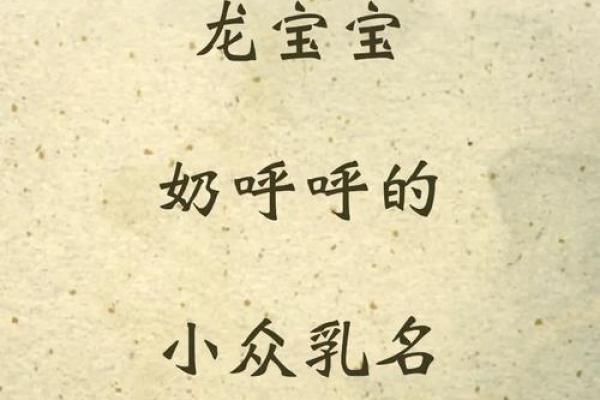 龙宝宝
奶呼呼的
小众乳名